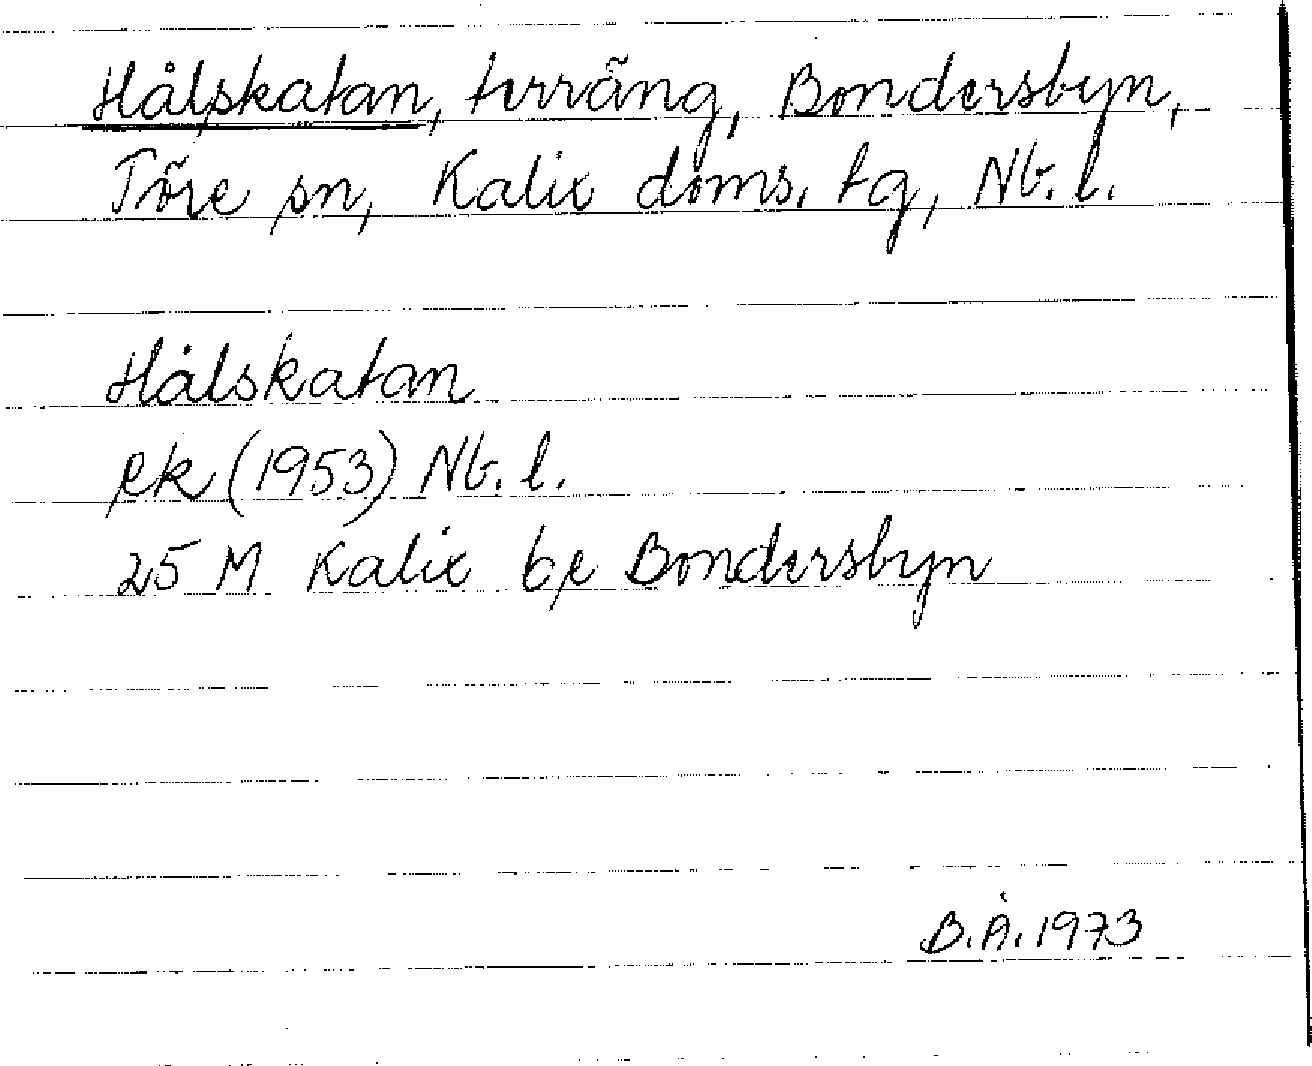 Hålskatan, terräng, Bondersbyn,
Töre sn, Kalix doms. tg, Nb. l.
Hålskatan
ek (1953) Nb. l.
25 M Kalix 6e Bondersbyn
B.Å. 1973